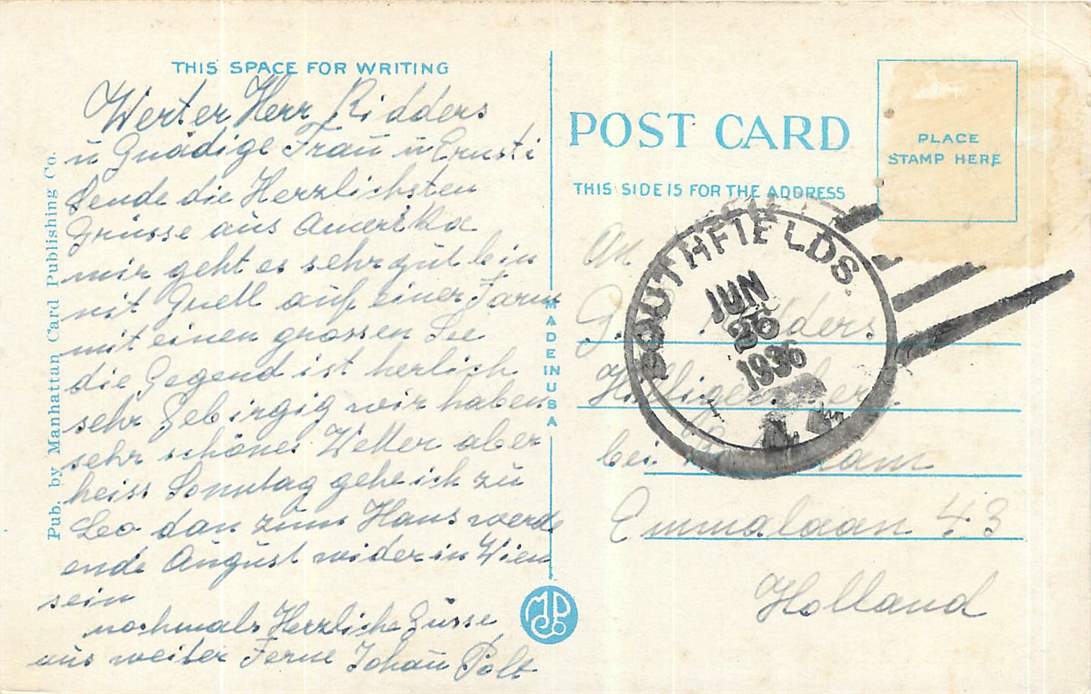 THIS SPACE FOR WRITING
Werter Herr Ridders
u Gnädige Frau u Ernsti
Sende die Herzlichsten
Grüsse aus Amerika
mir geht es sehr gut bin
mit Quell auf einer Farm
mit einen grossen See
die Gegend ist herlich
sehr Gebirgig wir haben
sehr schönes Wetter aber
heiss Sonntag gehe ich zu
Leo dan zum Hans werde
ende August wider in Wien
sein
nochmals Herzliche Grüsse
aus weiter Ferne Johan Polt
Pub. by Manhattan Card Publishing Co.
MADE IN U.S.A.
MPCo
POST CARD
THIS SIDE IS FOR THE ADDRESS
PLACE
STAMP HERE
SOUTHFIELDS
JUN
26
1936
An
G. Ridders
bei
Emmalaan 43
Holland